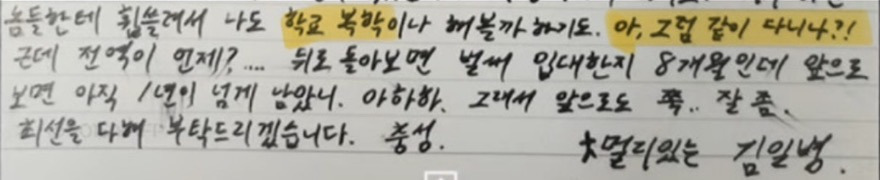 놈들한테 휩쓸려서 나도 학교 복학이나 해볼까 하기도. 아, 그럼 같이 다니나?!
근데 전역이 언제?.... 뒤로 돌아보면 벌써 입대한지 8개월인데 앞으로
보면 아직 1년이 넘게 남았니. 아하하. 그래서 앞으로도 쭉.. 잘 좀.
최선을 다해 부탁드리겠습니다. 충성.
멀리있는 김일병.